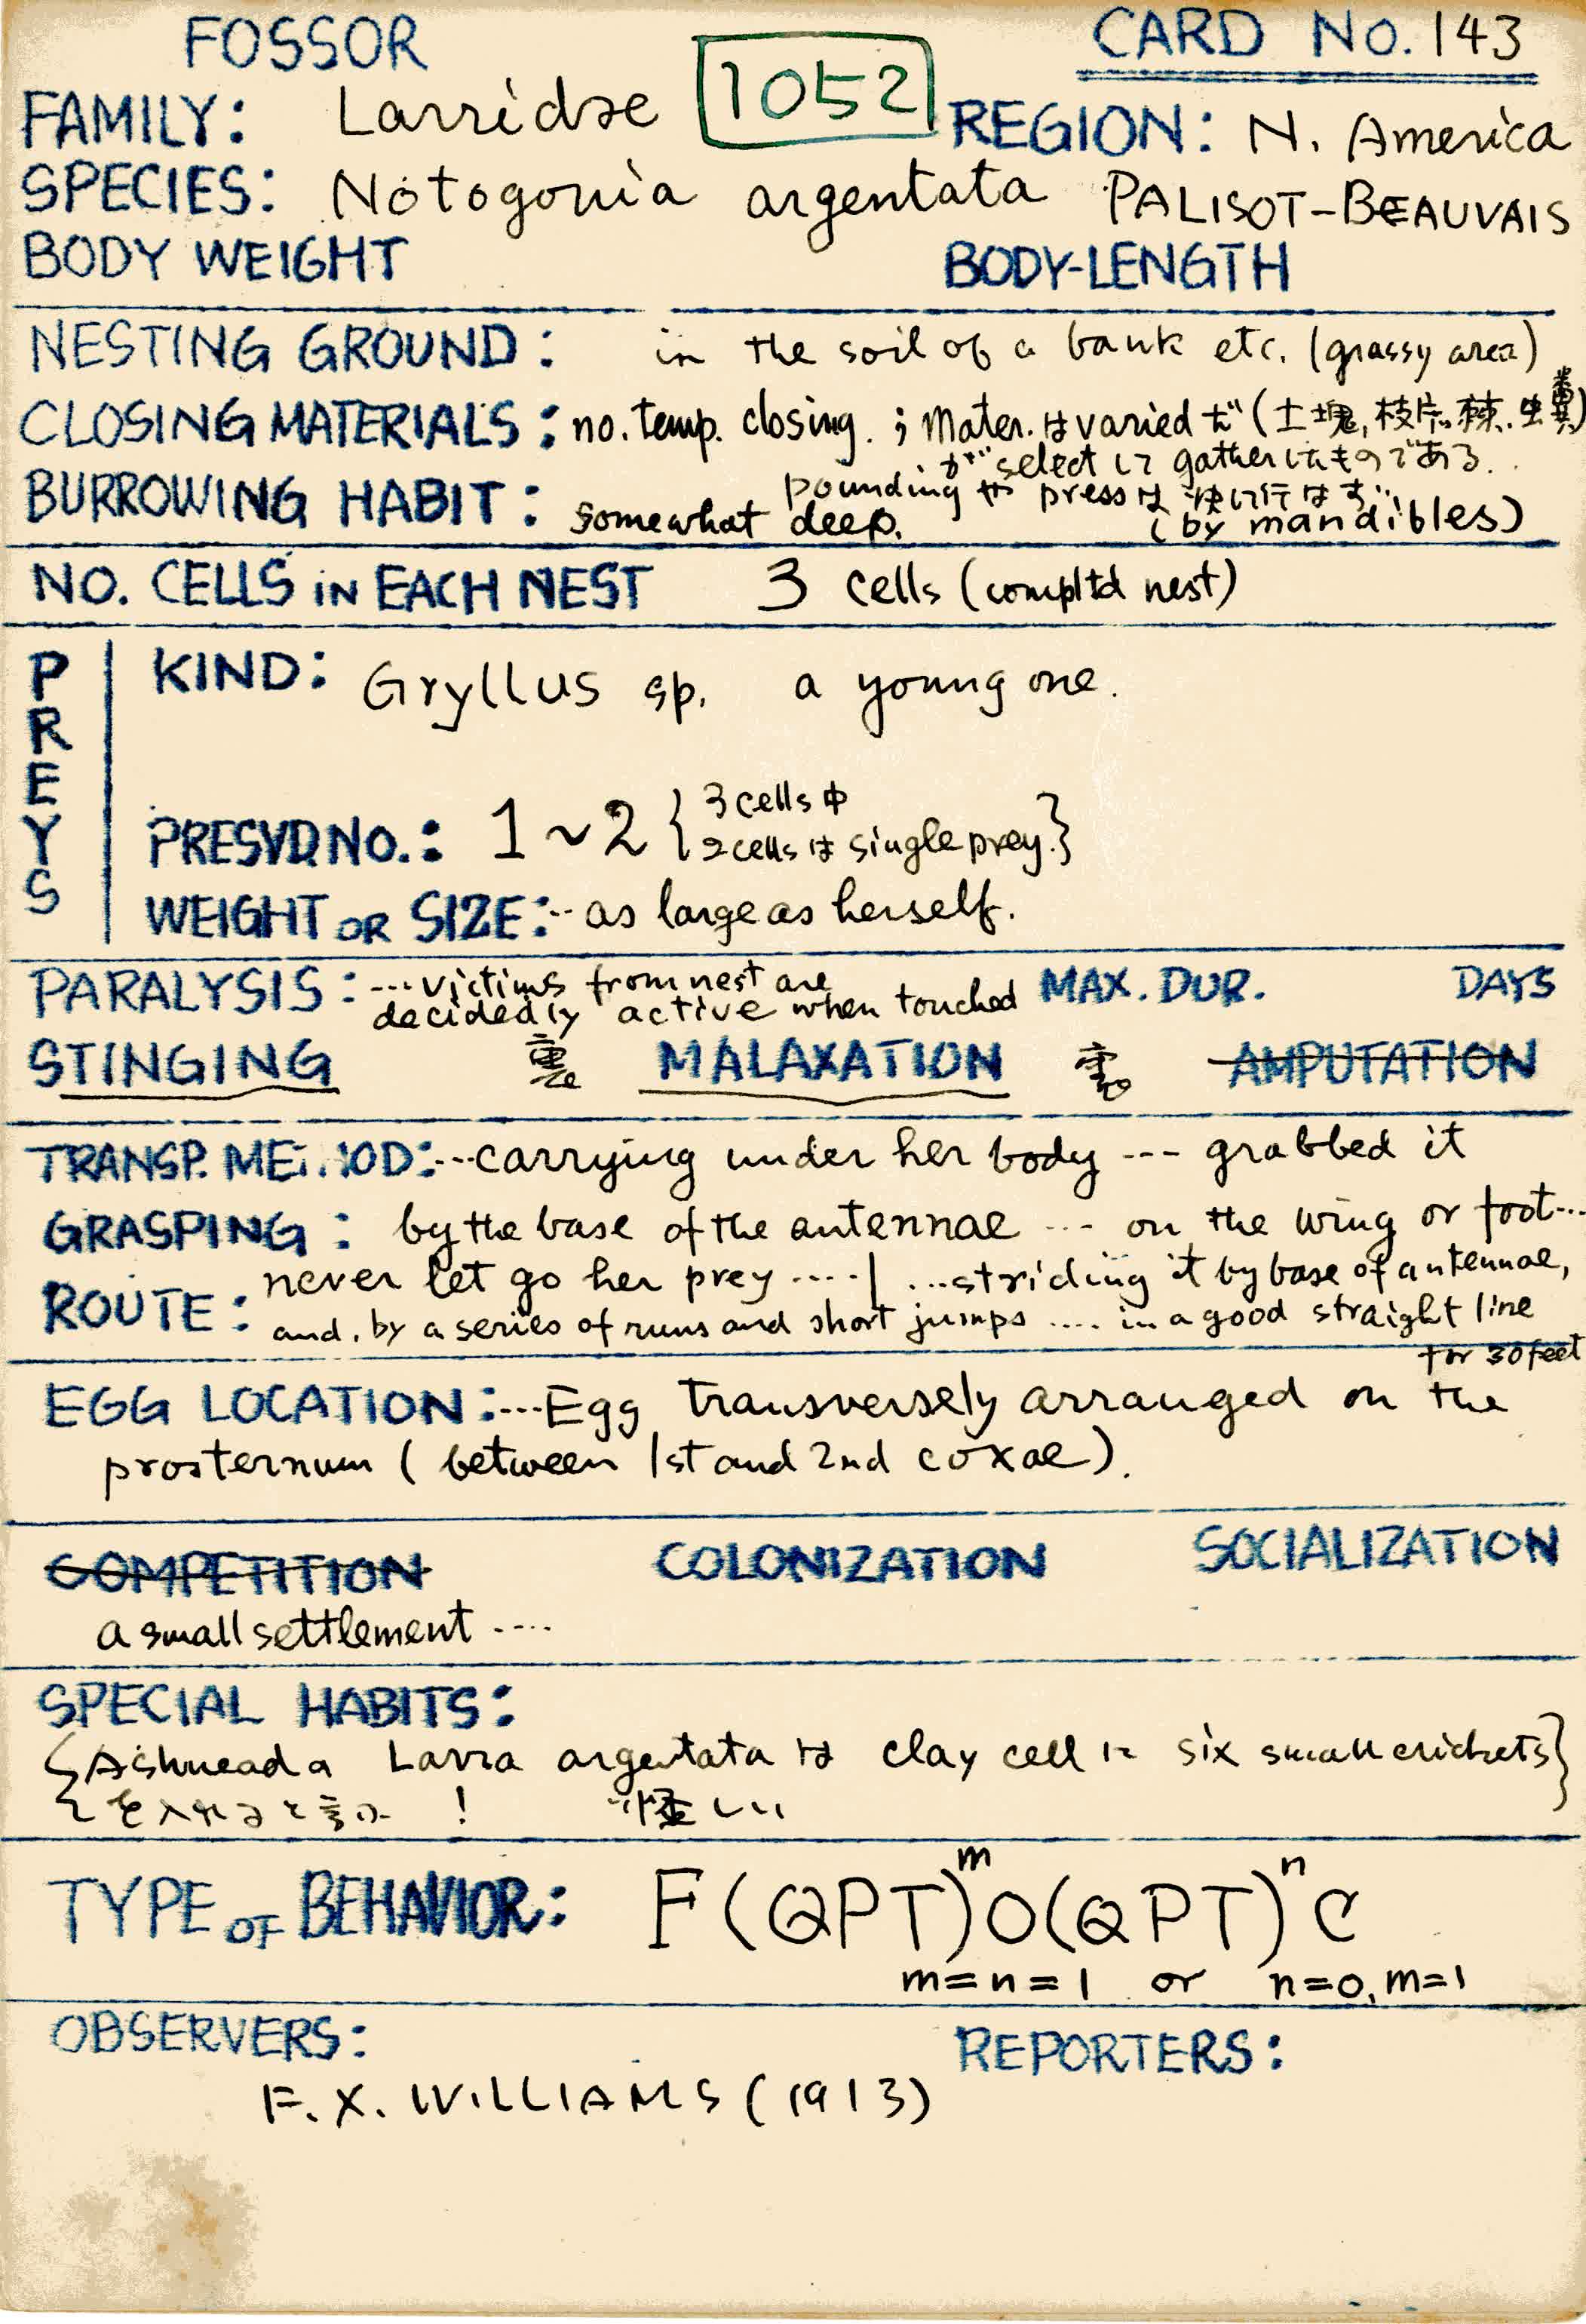 FOSSOR
CARD No. 143
1052
FAMILY: Larridae
REGION: N. America
SPECIES: Notogonia argentata PALISOT-BEAUVAIS
BODY WEIGHT
BODY-LENGTH
NESTING GROUND: in the soil of a bank etc. (grassy area)
CLOSING MATERIALS: no. temp. closing. ; Mater. は varied だ (土塊, 枝片, 棘, 虫糞)
が select して gatherしたものである.
BURROWING HABIT: somewhat deep.
pounding や press は 行はず
(by mandibles)
NO. CELLS in EACH NEST 3 cells (compltd nest)
PREYS
KIND: Gryllus sp. a young one.
PRESVD NO.: 1~2 {3 cells中
2 cells は single prey.}
WEIGHT OR SIZE: -- as large as herself.
PARALYSIS: ... victims from nest are
decidedly active when touched
MAX. DUR. DAYS
STINGING MALAXATION AMPUTATION
TRANSP. ME..HOD: ... carrying under her body --- grabbed it
GRASPING: by the base of the antennae --- on the wing or foot...
never let go her prey ....| ...striding it by base of antennae,
ROUTE: and. by a series of runs and short jumps .... in a good straight line
for 30 feet
EGG LOCATION: ...Egg transversely arranged on the
prosternum (between 1st and 2nd coxae).
COMPETITION COLONIZATION SOCIALIZATION
a small settlement ....
SPECIAL HABITS:
{Ashmead a Larra argentata は clay cell に six small crickets}
を入れると言ふ ! 怪しい
TYPE OF BEHAVIOR: F(QPT)^m O(QPT)^n C
m=n=1 or n=0, m=1
OBSERVERS:
REPORTERS:
F. X. WILLIAMS (1913)